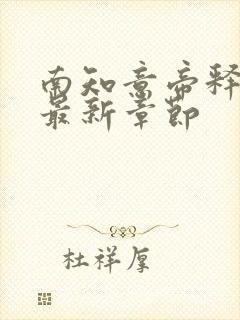 南知意帝释
最新章节
杜祥厚